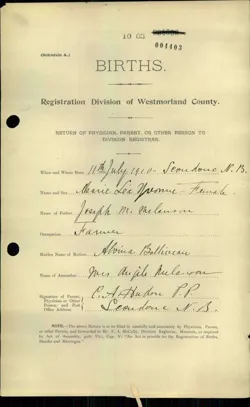 10 03
004403
(Schedule A.)
BIRTHS.
Registration Division of Westmorland County.
RETURN OF PHYSICIAN, PARENT, OR OTHER PERSON TO
DIVISION REGISTRAR.
When and Where Born, 11th July 1910 - Scoudouc N. B.
Name and Sex Marie Yvonne - Female
Name of Father, Joseph M. Melanson
Occupation, Farmer
Maiden Name of Mother,
Name of Accoucheur, Mrs Melanson
Signature of Parent,
Physician or Other
Person; and Post
Office Address,
P. P.
Scoudouc N. B.
NOTE.—The above Return is to be filled in carefully and accurately by Physician, Parent,
or other Person, and forwarded to
required by Act of Assembly, for the Registration of Births,
Deaths and Marriages.